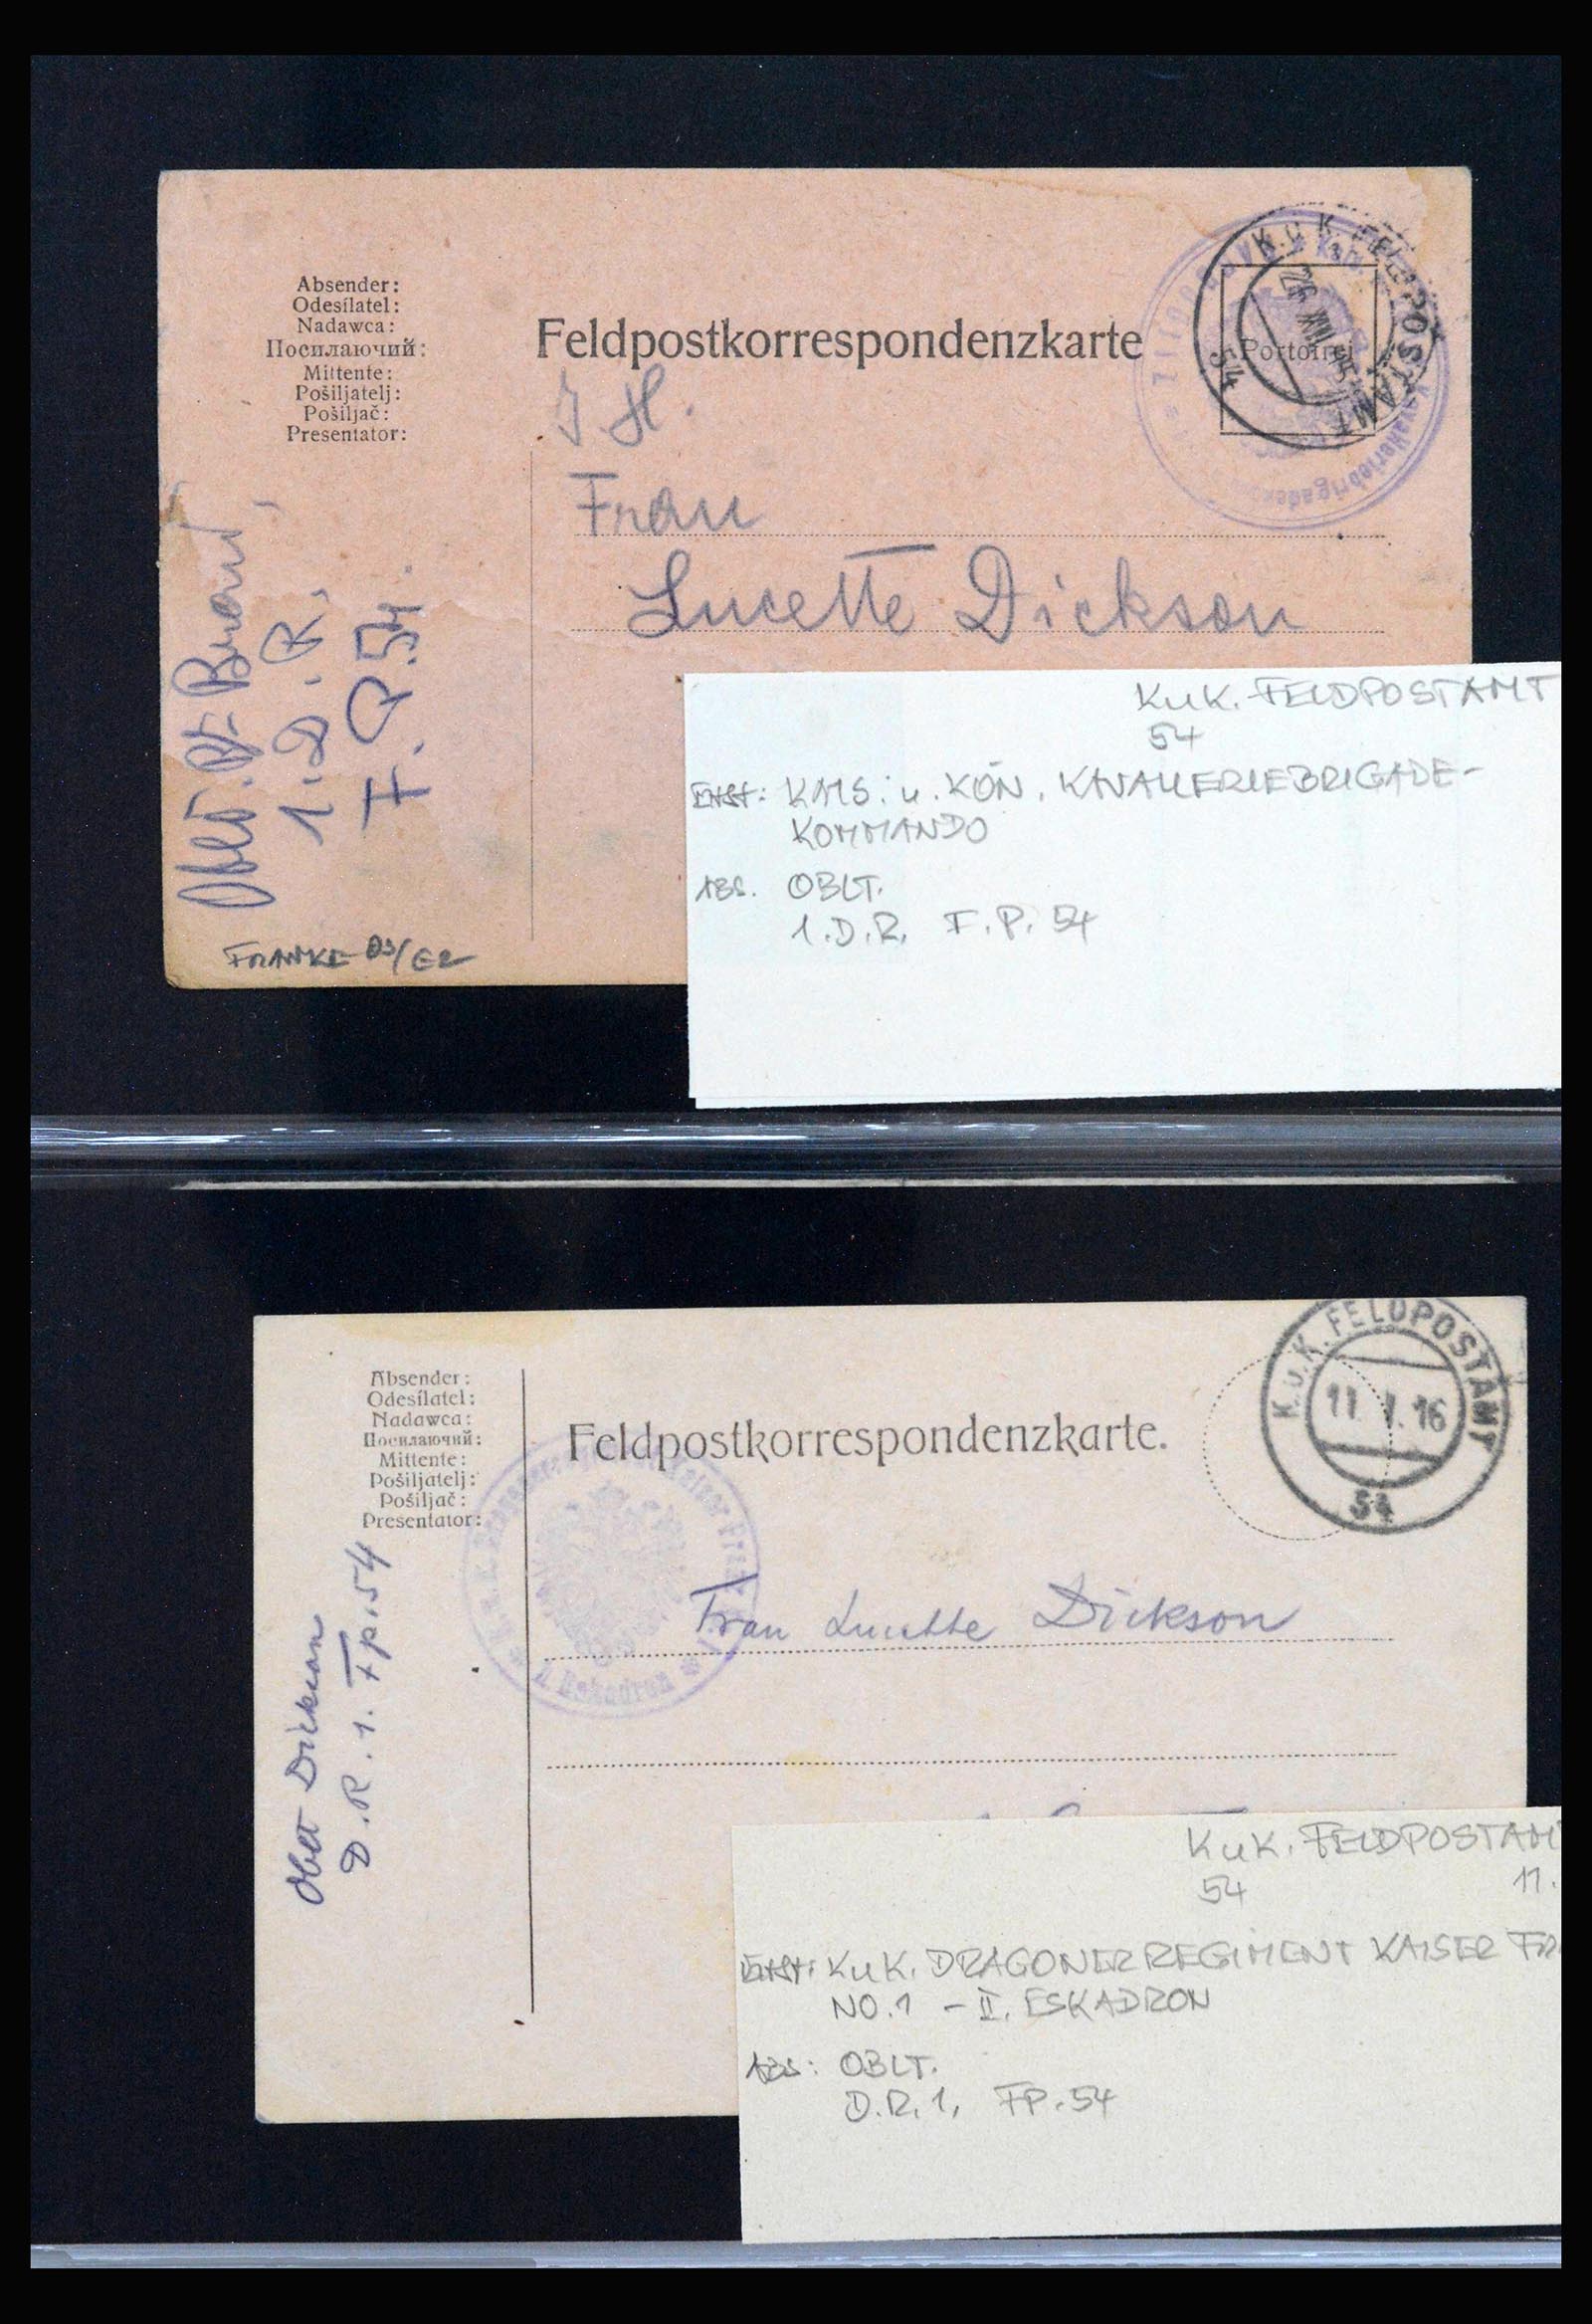 Absender:
Odesílatel:
Nadawca:
Посилаючий:
Mittente:
Pošiljatelj:
Pošiljač:
Presentator:
Feldpostkorrespondenzkarte
K.u.K. FELDPOSTAMT
54
Portofrei
Kavalleriebrigade
Frau
Lucette Dickson
1. D. R.
F. P. 54.
FRANKE
KuK. FELDPOSTAMT
54
KAIS. u. KÖN. KAVALLERIEBRIGADE-
KOMMANDO
ABS. OBLT.
1. D. R. F. P. 54
Absender:
Odesílatel:
Nadawca:
Посилаючий:
Mittente:
Pošiljatelj:
Pošiljač:
Presentator:
Feldpostkorrespondenzkarte.
K.u.K. FELDPOSTAMT
11. I. 16
54
Eskadron
Frau Lucette Dickson
Oblt Dickson
D. R. 1. Fp. 54
KuK. FELDPOSTAM
54 11.
KuK. DRAGONERREGIMENT KAISER FR
NO. 1 - II. ESKADRON
ABS: OBLT.
D. R. 1, FP. 54